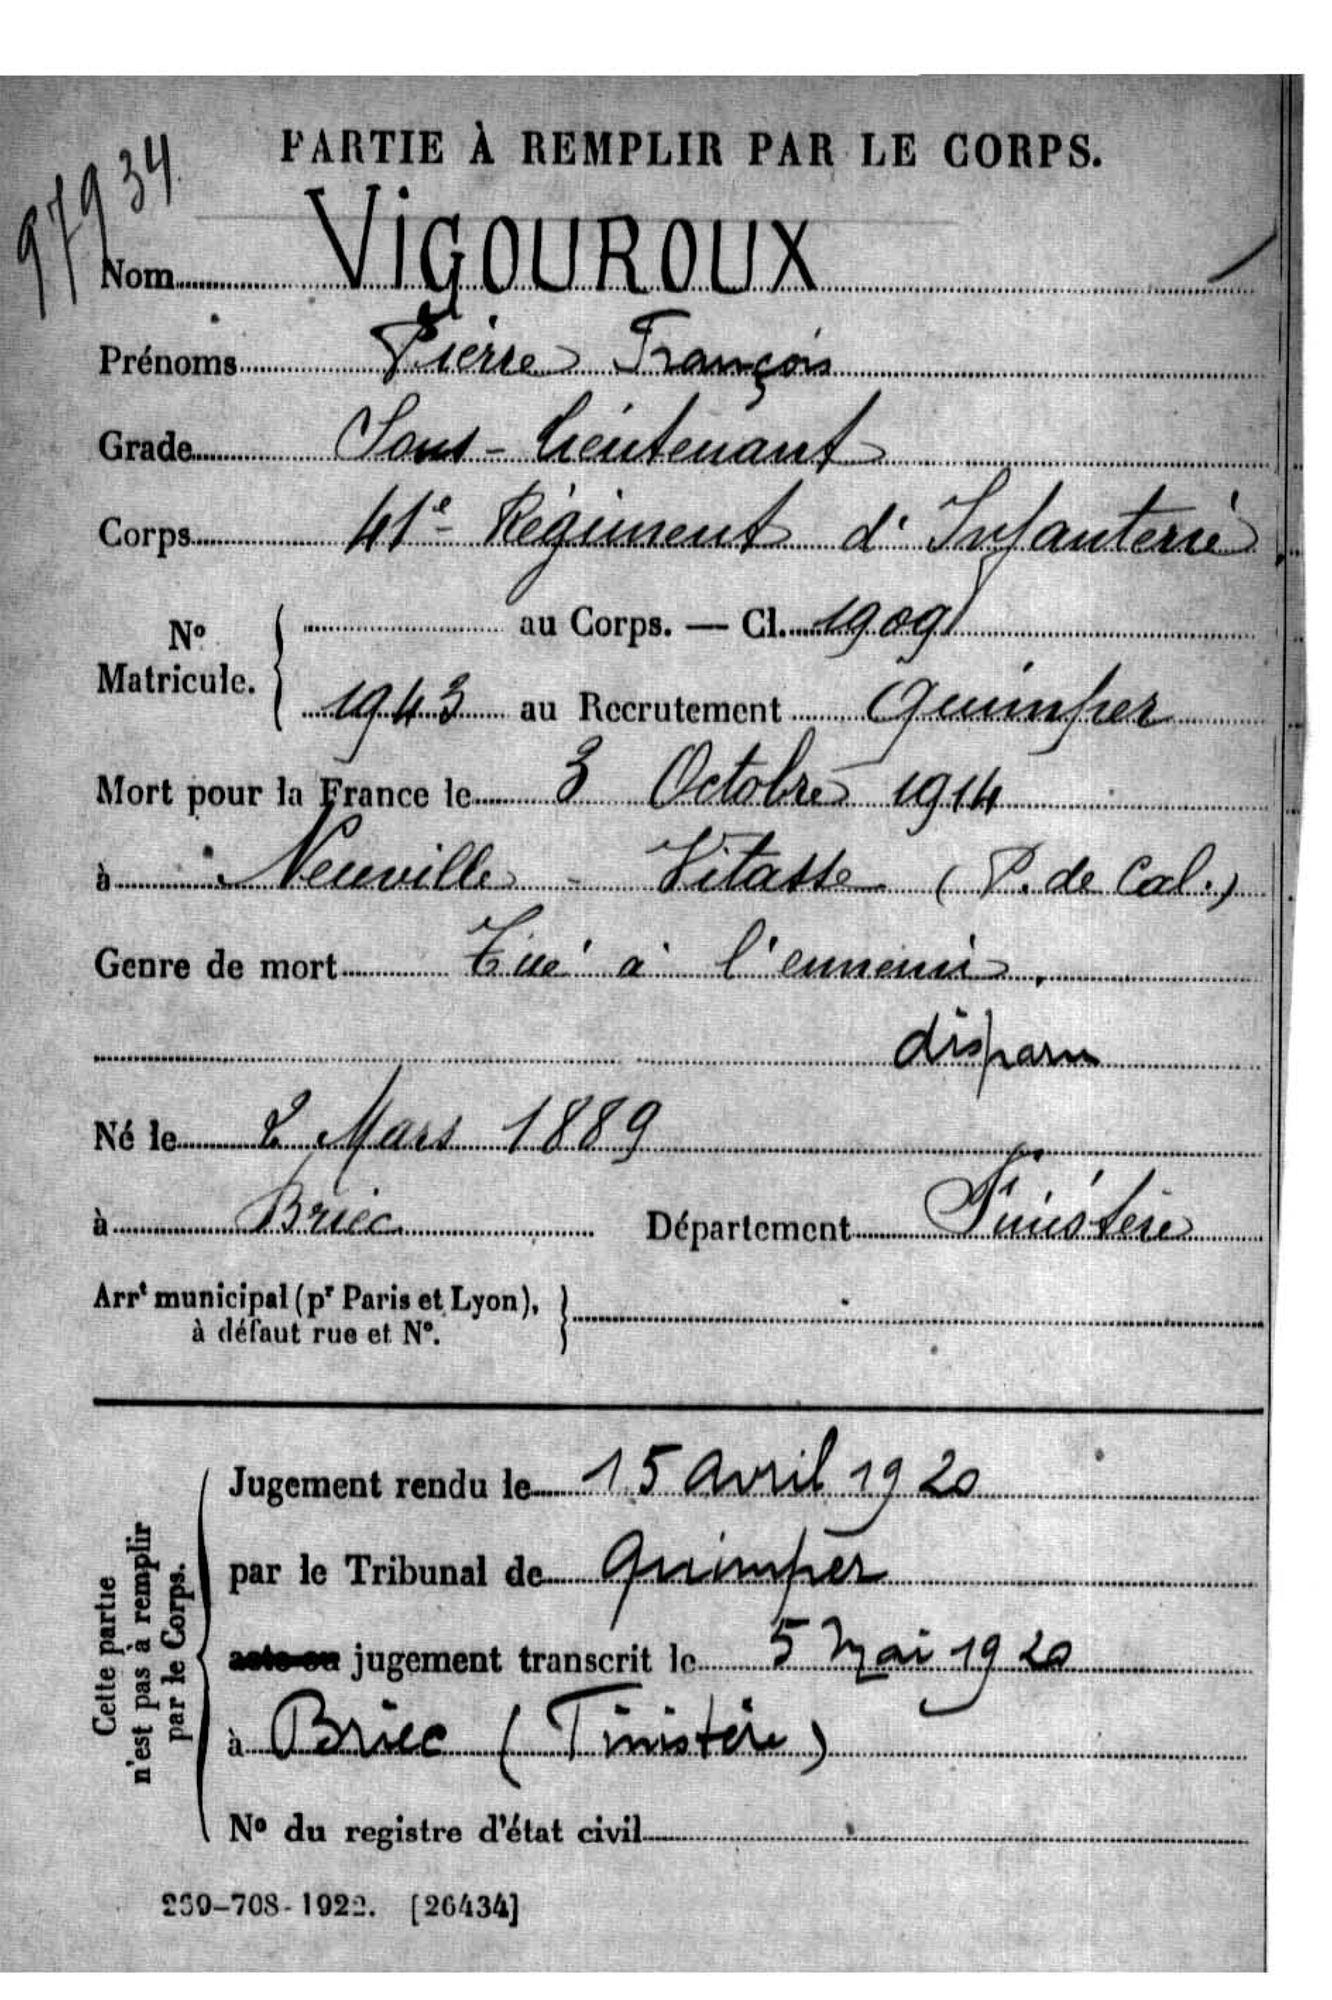 PARTIE À REMPLIR PAR LE CORPS.
97934.
Nom VIGOUROUX
Prénoms Pierre François
Grade Sous-Lieutenant
Corps 41e Régiment d'Infanterie
No Matricule. { au Corps. — Cl. 1909
1943 au Recrutement Quimper
Mort pour la France le 3 Octobre 1914
à Neuville - Vitasse (P. de Cal.)
Genre de mort Tué à l'ennemi,
disparu
Né le 2 Mars 1889
à Briec Département Finistère
Arrt municipal (pr Paris et Lyon), }
à défaut rue et No.
Cette partie
n'est pas à remplir
par le Corps.
Jugement rendu le 15 Avril 1920
par le Tribunal de Quimper
acte ou jugement transcrit le 5 Mai 1920
à Briec (Finistère)
No du registre d'état civil
259-708-1922. [26434]